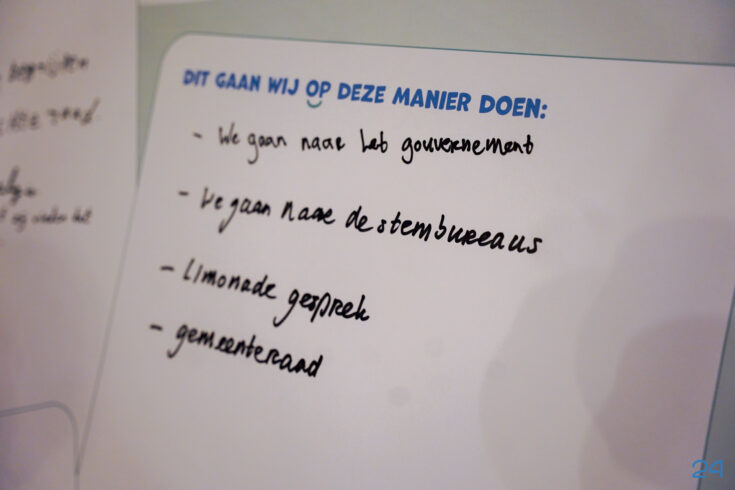 DIT GAAN WIJ OP DEZE MANIER DOEN:
- We gaan naar het gouvernement
- We gaan naar de stembureaus
- Limonade gesprek
- gemeenteraad
24